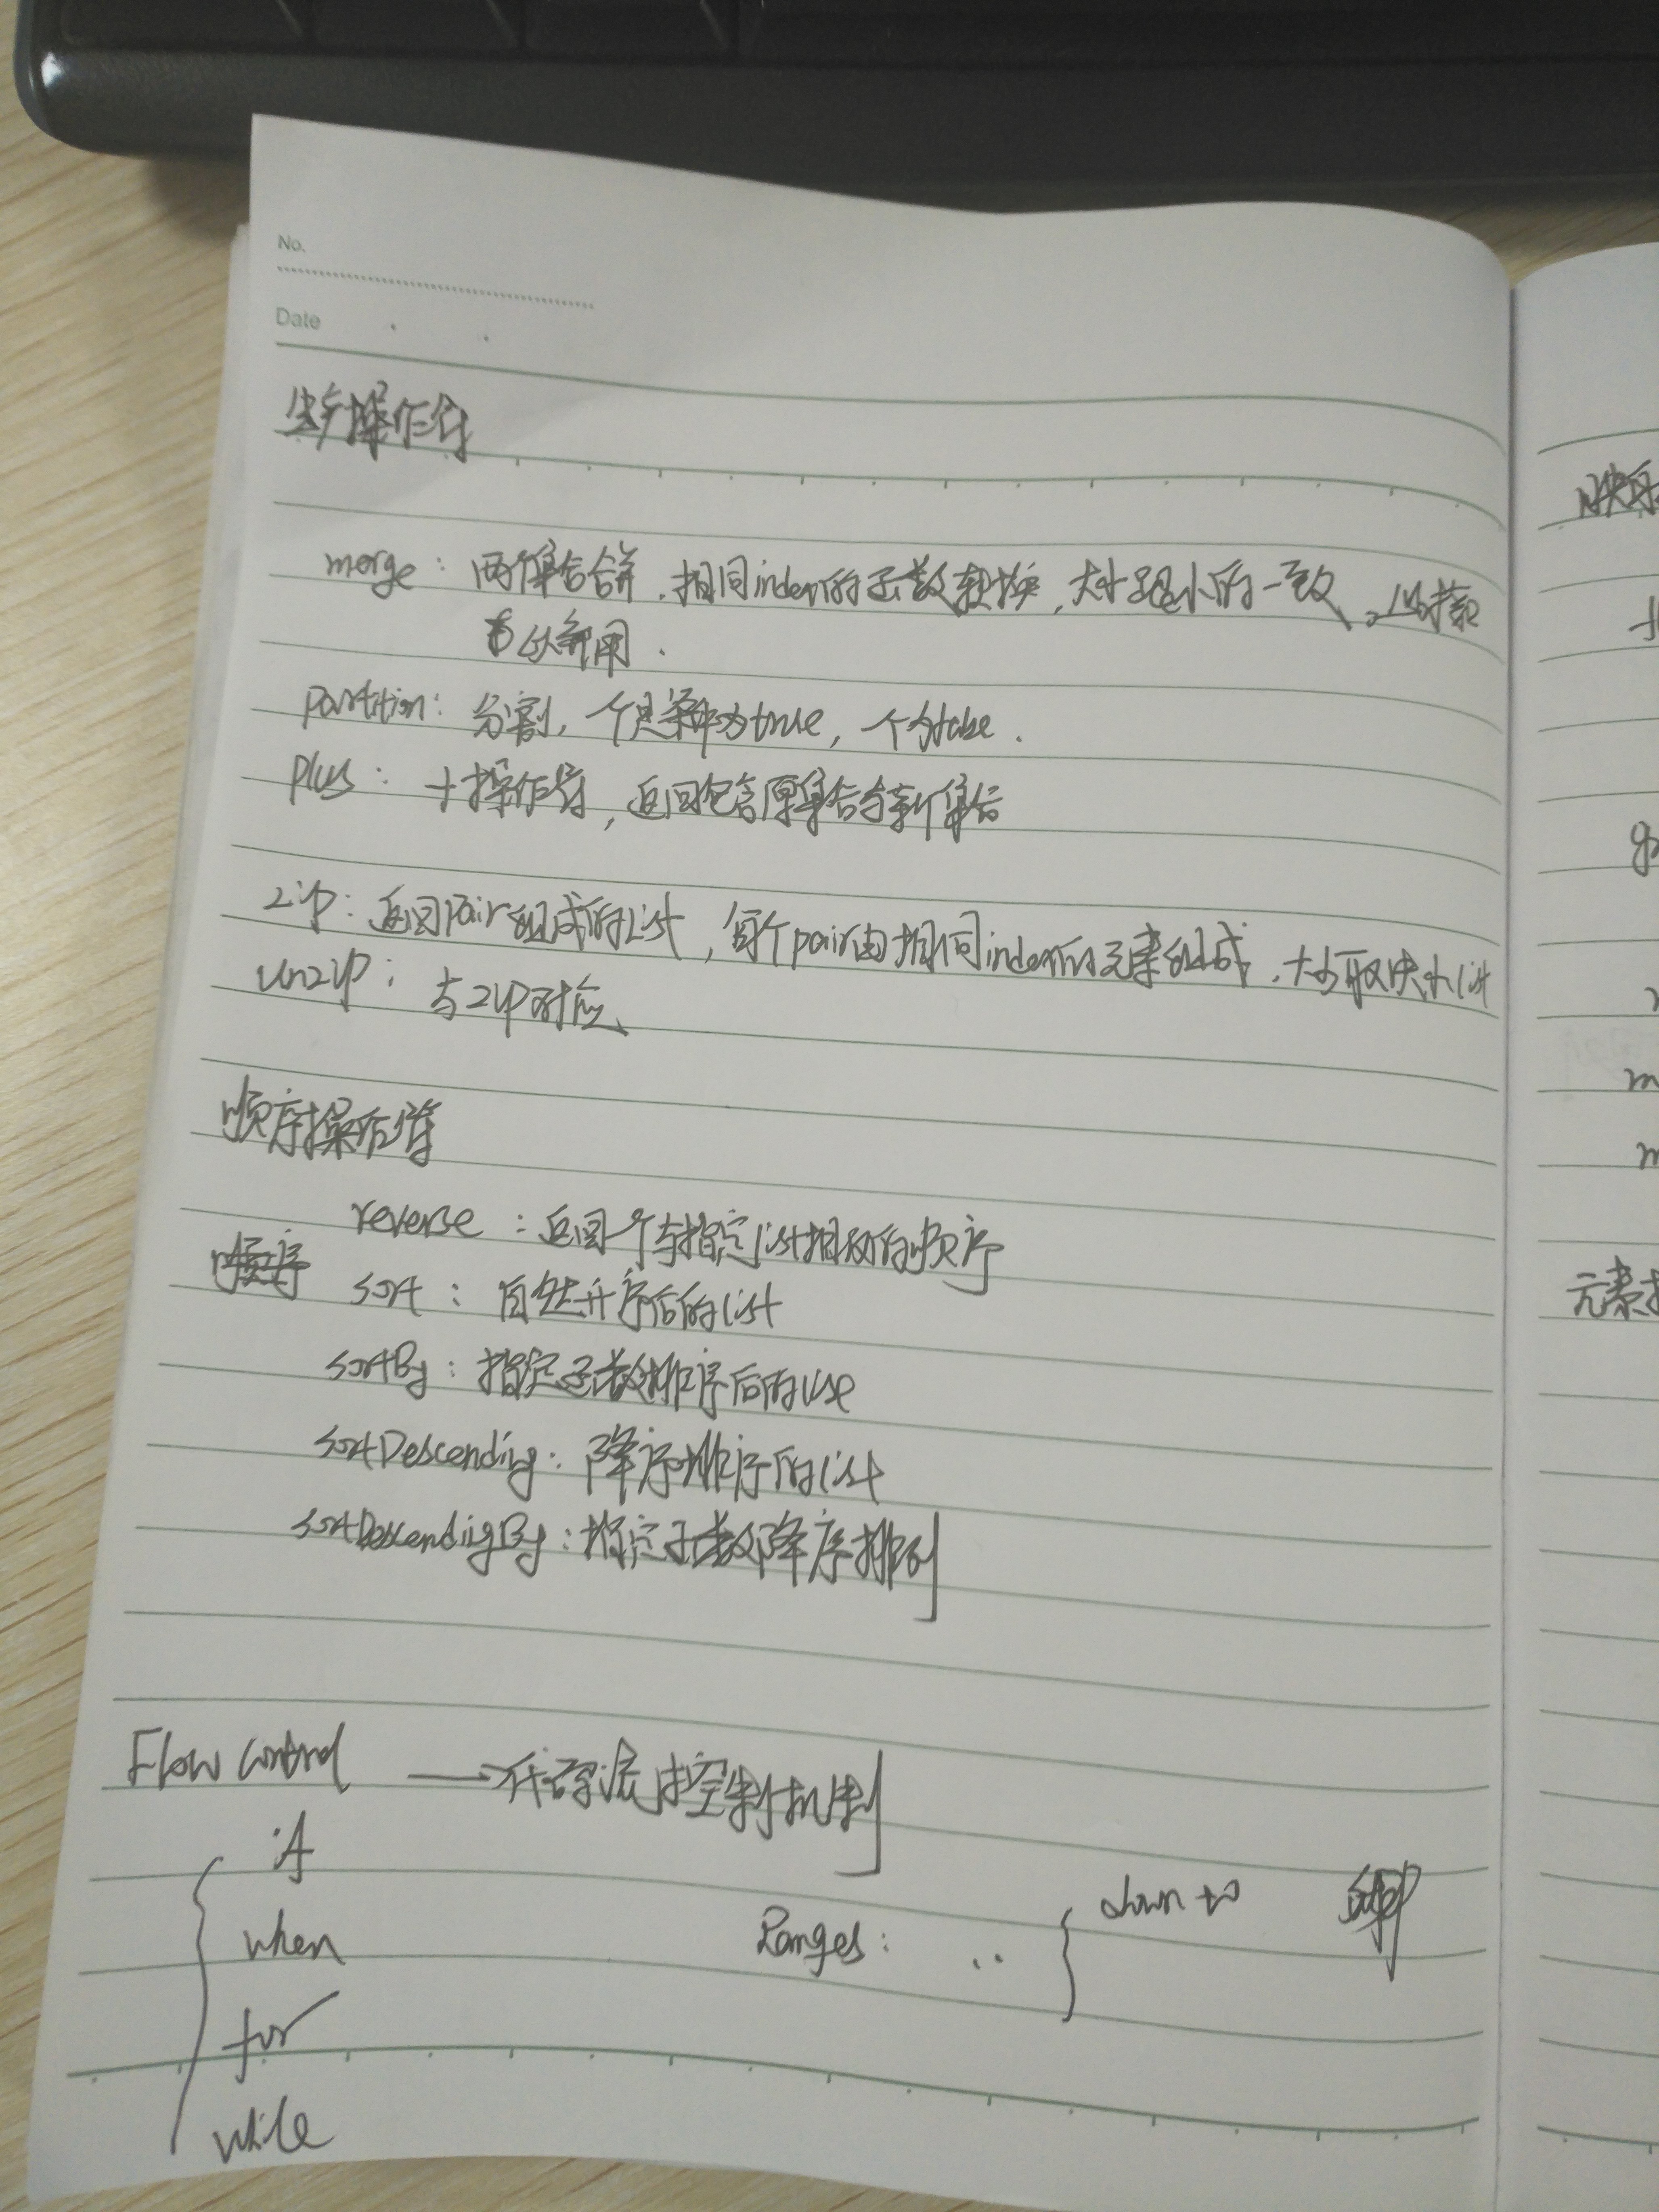 No.
Date
生产操作符
merge: 两个集合合并,相同index的函数转换,大小跟小的一致。
partition: 分割,一个是条件为true,一个为false.
plus: +操作符,返回包含原集合与新集合
zip: 返回Pair组成的List,每个pair由相同index的元素组成,大小取决小list
unzip: 与zip对应
顺序操作符
reverse: 返回一个与指定list相反的顺序
顺序
sort: 自然升序后的list
sortBy: 指定函数排序后的
sortDescending: 降序排序的list
sortDescendingBy: 指定函数降序排列
Flow control → 代码流控制机制
if
when
for
while
Ranges: ..
down to step
元素